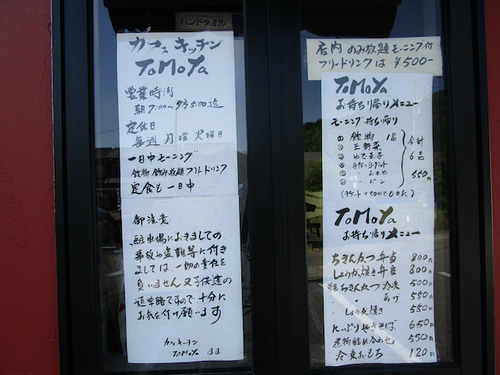 ハンドタオル
カフェキッチン
ToMoYa
営業時間
朝7:00〜夕5:00迄
定休日
毎週 月曜 火曜日
一日中モーニング
飲物 飲み放題 フリードリンク
定食も一日中
御注意
駐車場におきましての
事故や盗難等に付き
ましては 一切の責任を
負いません 又子供達の
通学路ですので十分に
お気を付け願います
カフェキッチン
ToMoYa
店内 のみ放題 モーニング付
フリードリンクは ¥500-
ToMoYa
お持ち帰りメニュー
モーニング持ち帰り
① 飲物 1品
② 生野菜
③ ゆで玉子
④
⑤
⑥ パン
合計
6品
550円
ToMoYa
お持ち帰りメニュー
ちきんかつ弁当 800円
しょうが焼き弁当 800円
550円
550円
しょうが焼き 550円
たっぷりやきそば 650円
煮物詰め合わせ 550円
120円